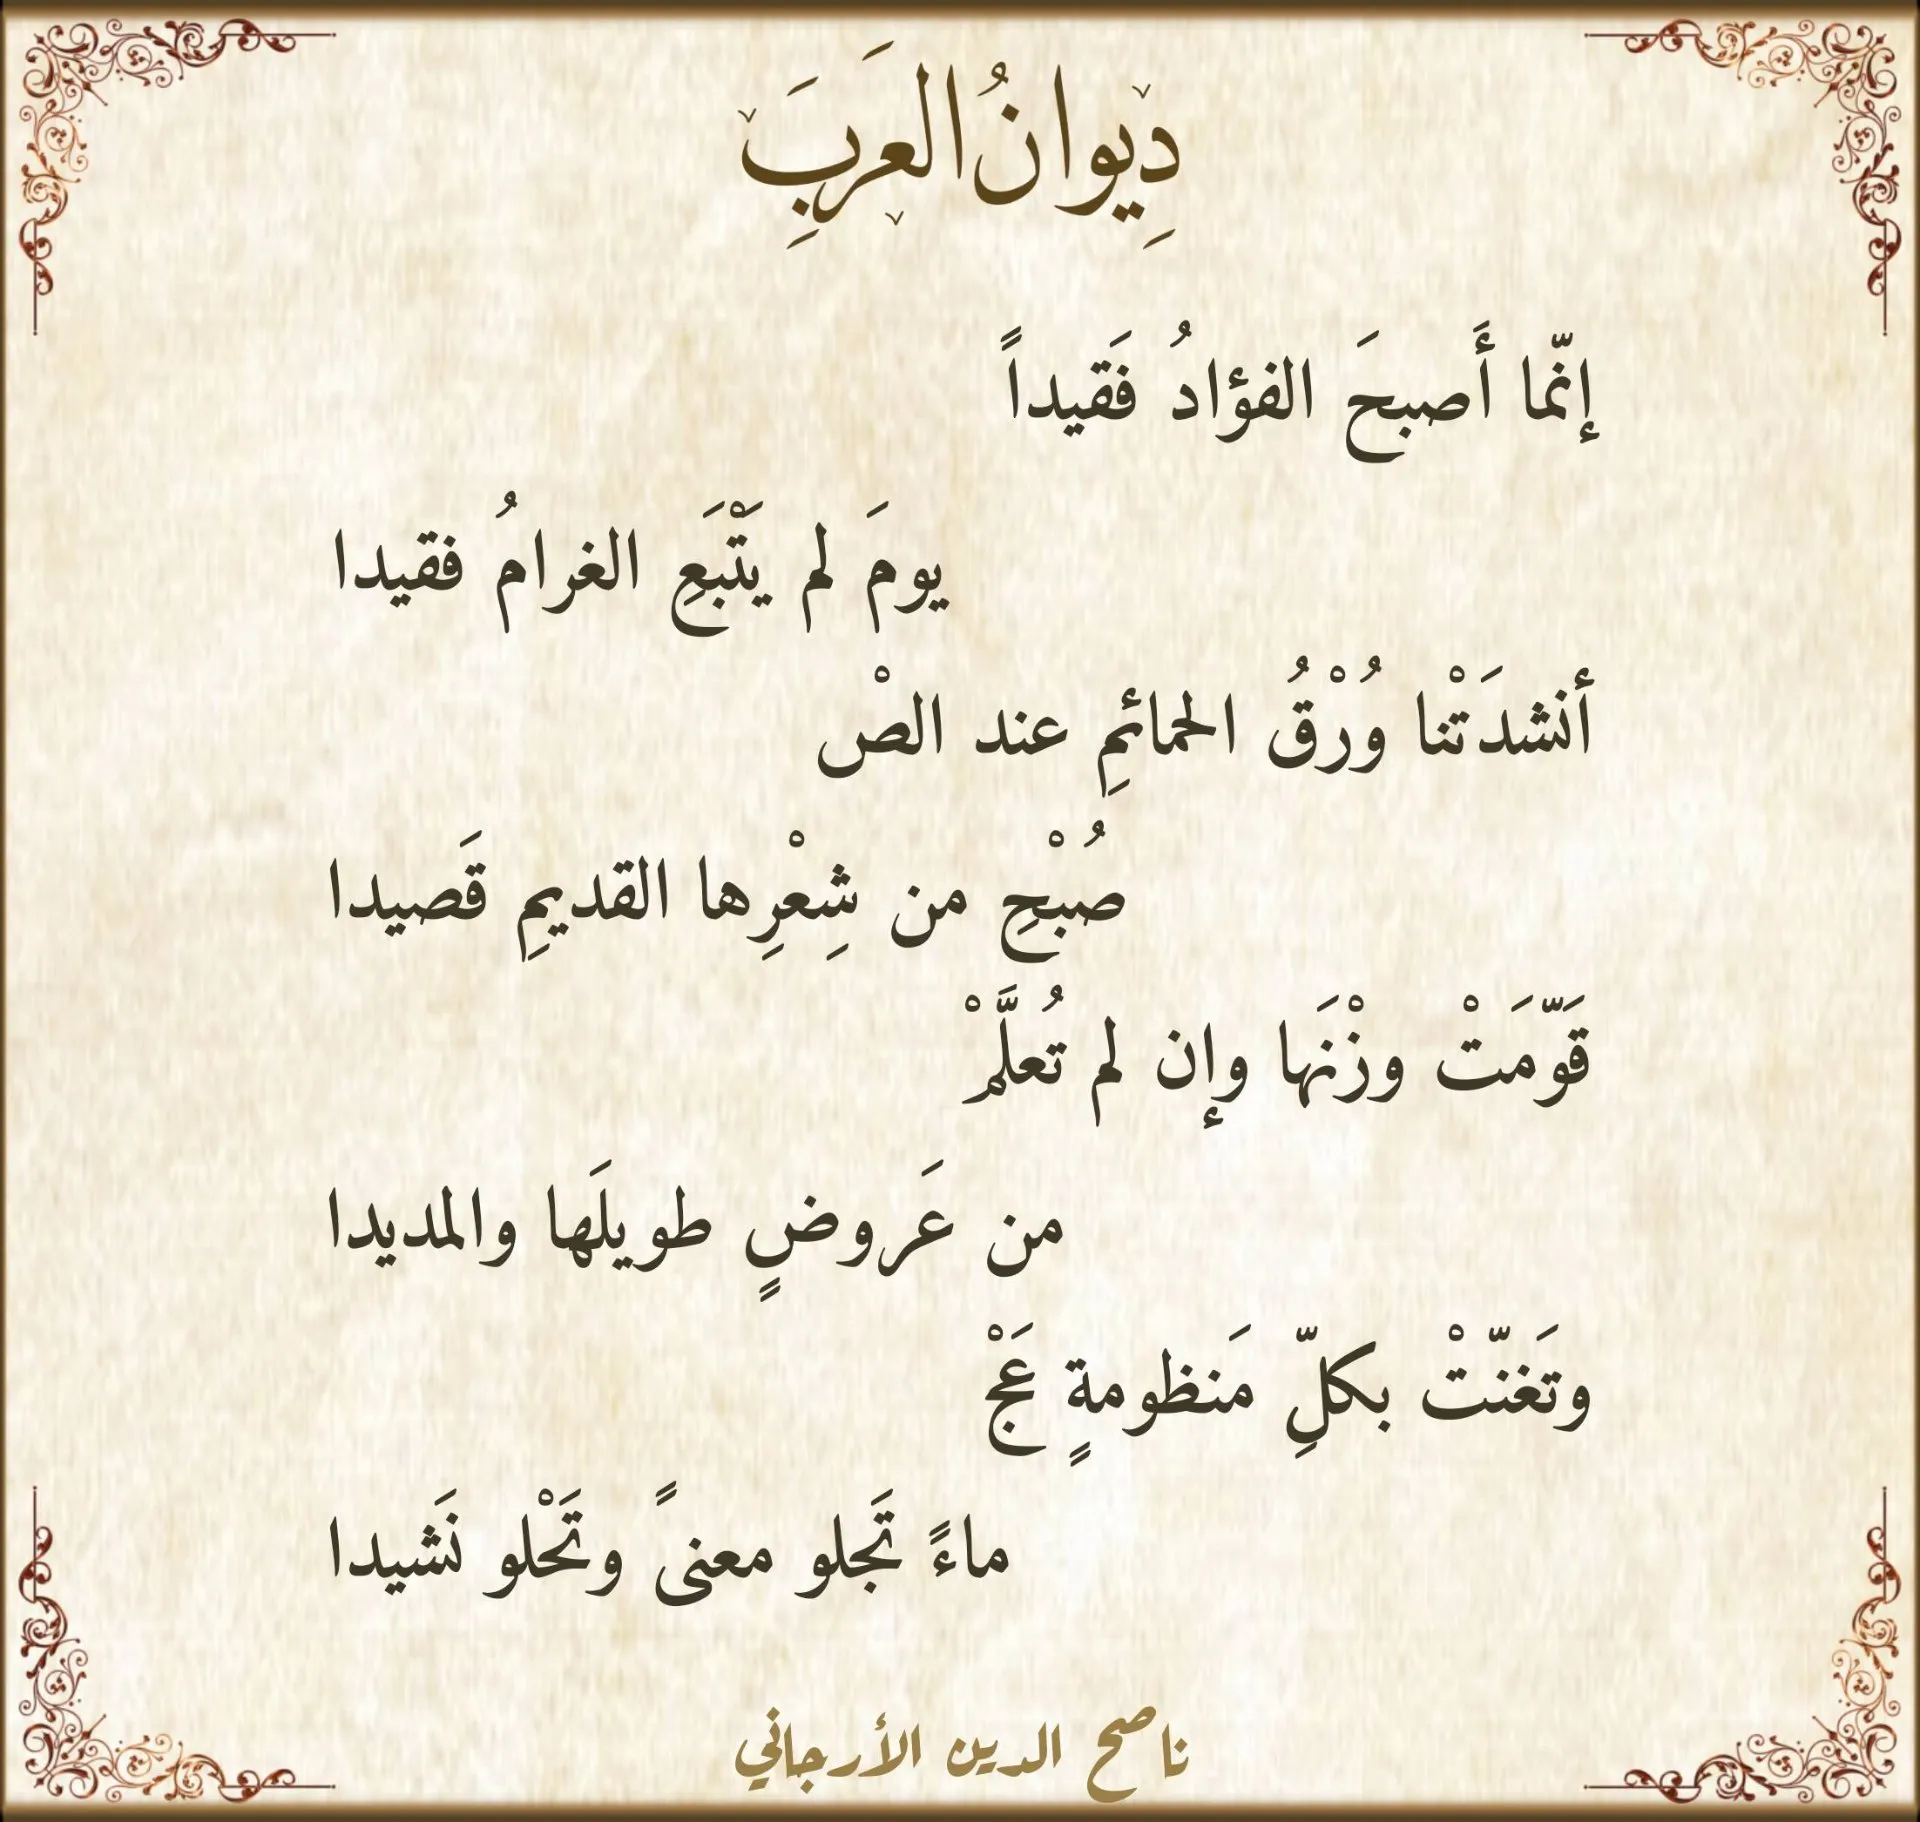 دِيوانُ العَربَِ
إنّما أَصبحَ الفؤادُ فَقيداً
يومَ لم يَتْبَعِ الغرامُ فقيدا
أنشدَتْنا وُرْقُ الحمائمِ عند الصْ
صُبْحِ من شِعْرِها القديمِ قَصيدا
قَوّمَتْ وزْنَها وإن لم تُعلَّمْ
من عَروضٍ طويلَها والمديدا
وتَغنّتْ بكلِّ مَنظومةٍ عَجْ
ماءً تَجلو معنىً وتَحْلو نَشيدا
ناصح الدين الأرجاني